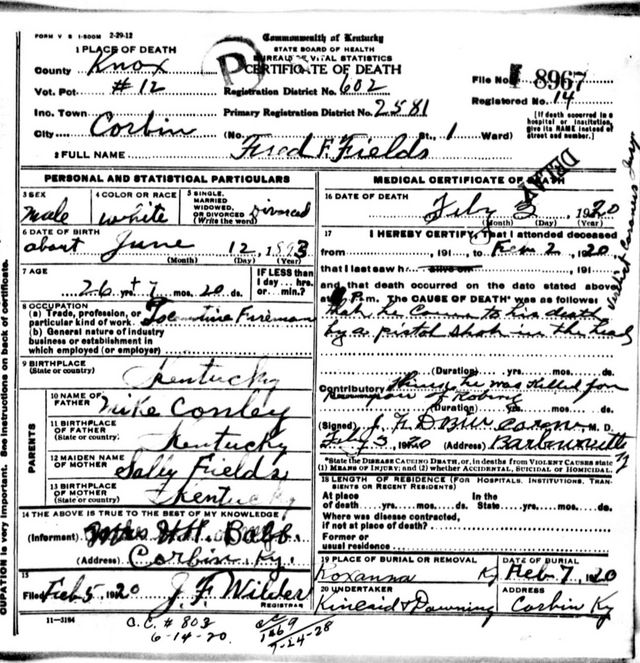 FORM V S 1-500M 2-29-12
Commonwealth of Kentucky
STATE BOARD OF HEALTH
BUREAU OF VITAL STATISTICS
CERTIFICATE OF DEATH
P
1 PLACE OF DEATH
County Knox
Vot. Pct. #12
Inc. Town
City Corbin
Registration District No. 602
Primary Registration District No. 2581
(No. St., 1 Ward)
File No. 8967
Registered No. 14
[If death occurred in a hospital or institution, give its NAME instead of street and number.]
2 FULL NAME Fred F. Fields
DELAY
PERSONAL AND STATISTICAL PARTICULARS
3 SEX
male
4 COLOR OR RACE
white
5 SINGLE, MARRIED WIDOWED, OR DIVORCED (Write the word)
Divorced
6 DATE OF BIRTH
about June 12, 1893
(Month) (Day) (Year)
7 AGE
26 yrs 7 mos. 20 ds.
IF LESS than 1 day... hrs. or... min.?
8 OCCUPATION
(a) Trade, profession, or particular kind of work Locomotive Fireman
(b) General nature of industry business or establishment in which employed (or employer)
9 BIRTHPLACE
(State or country) Kentucky
PARENTS
10 NAME OF FATHER Mike Conley
11 BIRTHPLACE OF FATHER (State or country) Kentucky
12 MAIDEN NAME OF MOTHER Sally Fields
13 BIRTHPLACE OF MOTHER (State or country) Kentucky
14 THE ABOVE IS TRUE TO THE BEST OF MY KNOWLEDGE
(Informant) Mrs. Babb
(Address) Corbin Ky.
15
Filed Feb 5, 1920 J. F. Wilder
REGISTRAR
MEDICAL CERTIFICATE OF DEATH
16 DATE OF DEATH
Feby 2, 1920
(Month) (Day) (Year)
17 I HEREBY CERTIFY, That I attended deceased
from , 191 , to Feb 2, 1920,
that I last saw h alive on , 191 ,
and that death occurred on the date stated above
at P.m. The CAUSE OF DEATH* was as follows:
that he came to his death
by a pistol shot in the head
(Duration) yrs. mos. ds.
Contributory he was killed for
of Robing
(Duration) yrs. mos. ds.
(Signed) Coroner M. D.
Feby 3, 1920 (Address) Barbourville Ky
*State the DISEASE CAUSING DEATH, or, in deaths from VIOLENT CAUSES state (1) MEANS OF INJURY; and (2) whether ACCIDENTAL, SUICIDAL or HOMICIDAL.
18 LENGTH OF RESIDENCE (FOR HOSPITALS, INSTITUTIONS, TRANSIENTS OR RECENT RESIDENTS)
At place of death yrs. mos. ds. In the State yrs. mos. ds.
Where was disease contracted, if not at place of death?
Former or usual residence
19 PLACE OF BURIAL OR REMOVAL
Roxanna Ky
DATE OF BURIAL
Feb 7, 1920
20 UNDERTAKER
Kincaid & Downing
ADDRESS
Corbin Ky
Verdict Coroners Jury
See instructions on back of certificate.
OCCUPATION is very important.
11-3184
C.C. # 803
6-14-20.
1-24-28